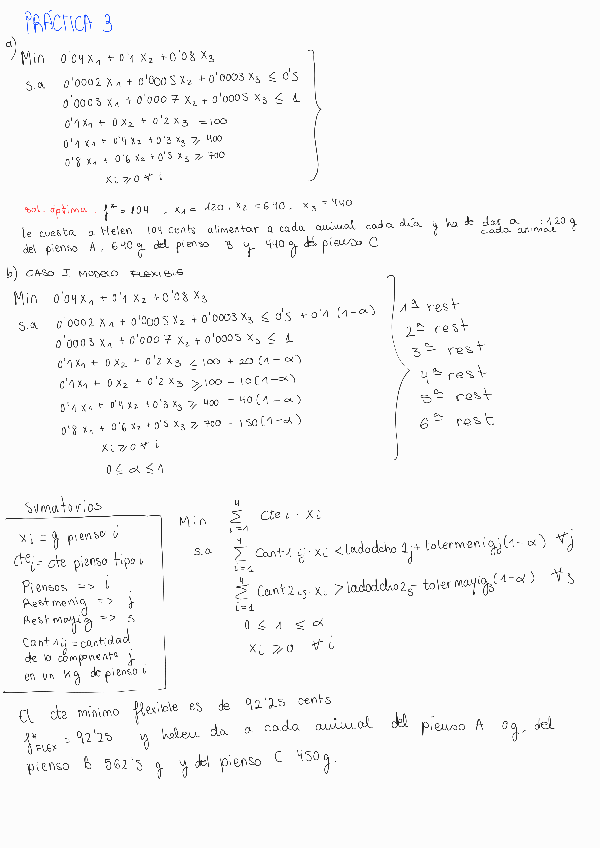 PRÁCTICA 3
a)
Min 0'04 x1 + 0'1 x2 + 0'08 x3
s.a 0'0002 x1 + 0'0005 x2 + 0'0003 x3 ≤ 0'5
0'0003 x1 + 0'0007 x2 + 0'0005 x3 ≤ 1
0'1 x1 + 0 x2 + 0'2 x3 = 100
0'1 x1 + 0'4 x2 + 0'3 x3 ≥ 400
0'8 x1 + 0'6 x2 + 0'5 x3 ≥ 700
xi ≥ 0 ∀ i
sol. optima. f* = 104 , x1 = 120, x2 = 640, x3 = 440
le cuesta a Helen 104 cents alimentar a cada animal cada día y ha de dar a cada animal : 120 g
del pienso A, 640 g del pienso B y 440 g de pienso C
b) CASO I MODELO FLEXIBLE
Min 0'04 x1 + 0'1 x2 + 0'08 x3
s.a 0'0002 x1 + 0'0005 x2 + 0'0003 x3 ≤ 0'5 + 0'1 (1-α) 1ª rest
0'0003 x1 + 0'0007 x2 + 0'0005 x3 ≤ 1 2ª rest
0'1 x1 + 0 x2 + 0'2 x3 ≤ 100 + 20 (1-α) 3ª rest
0'1 x1 + 0 x2 + 0'2 x3 ≥ 100 - 10 (1-α) 4ª rest
0'1 x1 + 0'4 x2 + 0'3 x3 ≥ 400 - 40 (1-α) 5ª rest
0'8 x1 + 0'6 x2 + 0'5 x3 ≥ 700 - 150 (1-α) 6ª rest
xi ≥ 0 ∀ i
0 ≤ α ≤ 1
Sumatorios
xi = g pienso i
ctei = cte pienso tipo i
Piensos => i
Restmenig => j
Restmayig => s
Cant1ij = cantidad
de la componente j
en un kg de pienso i
Min Σ i=1 4 Ctei · xi
s.a Σ i=1 4 Cant1ij · xi < ladodcho1j + tolermenigj (1-α) ∀ j
Σ i=1 4 Cant2is · xi > ladodcho2s - tolermayigs (1-α) ∀ s
0 ≤ 1 ≤ α
xi ≥ 0 ∀ i
El cte mínimo flexible es de 92'25 cents
f*FLEX = 92'25 y helen da a cada animal del pienso A 0g, del
pienso B 562'5 g y del pienso C 450 g.